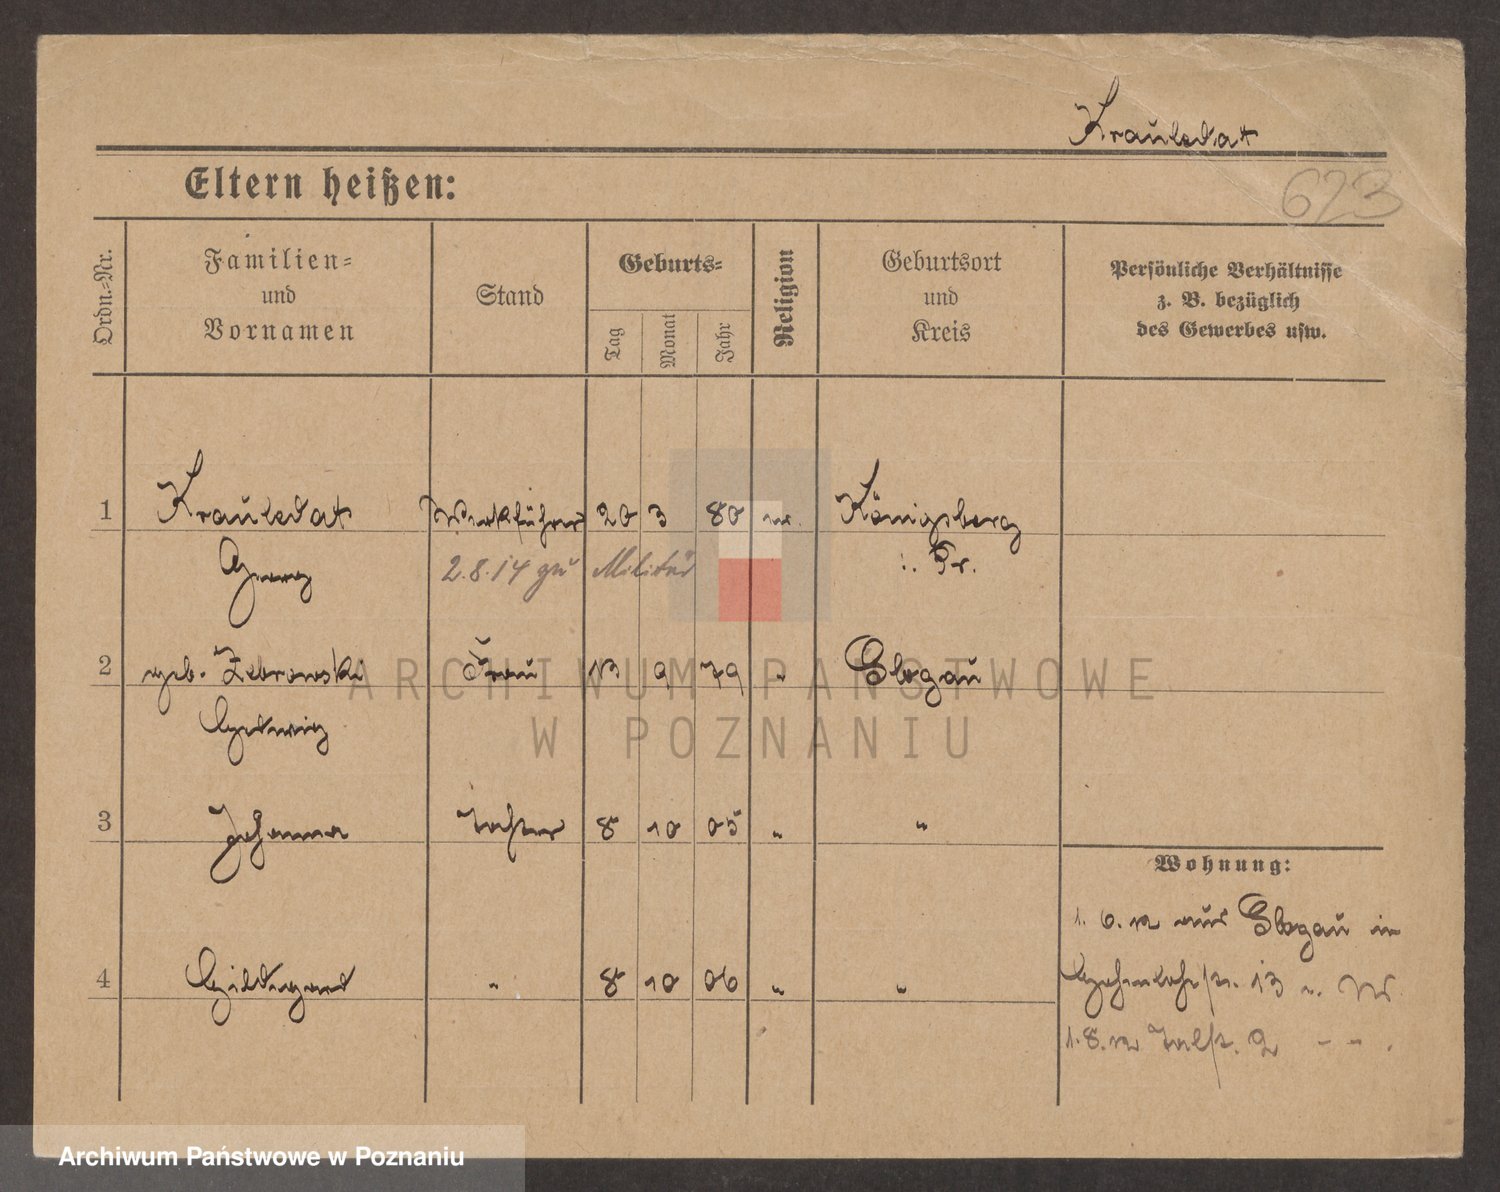 Krauledat
Eltern heißen:
623
Ordn.-Nr.
Familien-
und
Vornamen
Stand
Geburts-
Tag
Monat
Jahr
Religion
Geburtsort
und
Kreis
Persönliche Verhältnisse
z. B. bezüglich
des Gewerbes usw.
1 Krauledat Werkführer 20 3 80 Königsberg
Georg 2.8.14 zu Militär i. Pr.
2 geb. Zebrowski Frau 13 9 79 " Glogau
Hedwig
3 Johanna Tochter 8 10 05 " "
Wohnung:
1. 6. 12 aus Glogau in
4 Hildegard " 8 10 06 " "
Hohenlohestr. 13
1.8.12 Talstr. 2 - - .
ARCHIWUM PAŃSTWOWE
W POZNANIU
Archiwum Państwowe w Poznaniu